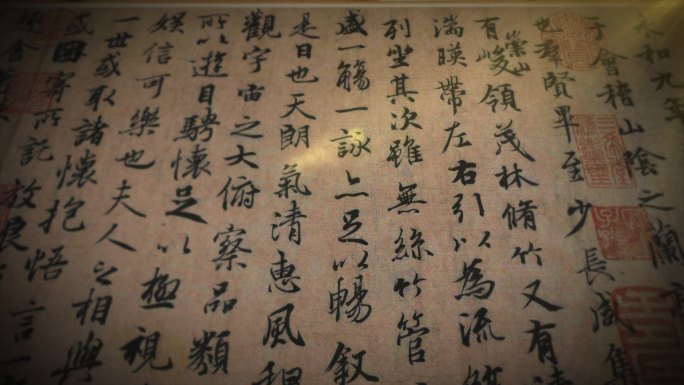 永和九年
于會稽山陰之蘭
也羣賢畢至少長咸集
有崇山峻領茂林脩竹又有
湍暎帶左右引以為流
列坐其次雖無絲竹管
盛一觴一詠亦足以暢叙
是日也天朗氣清惠風和
觀宇宙之大俯察品類
所以遊目騁懷足以極視
娛信可樂也夫人之相與
一世或取諸懷抱悟言一
或因寄所託放浪
趣舍